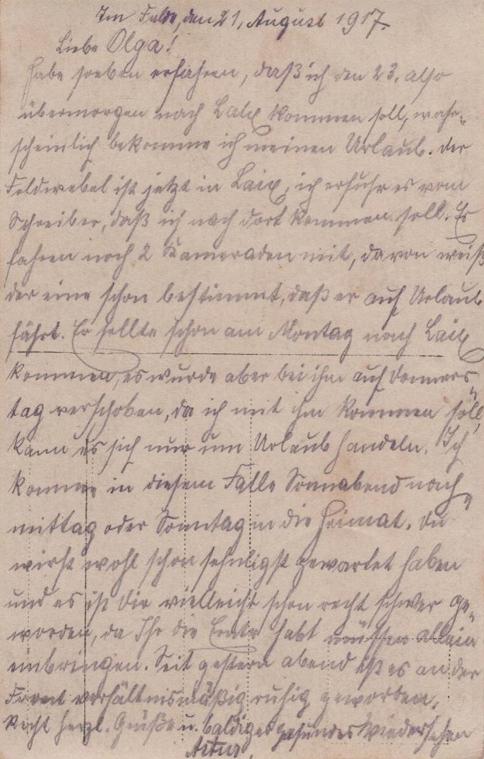 Im Felde, den 21. August 1917.
Liebe Olga!
Habe soeben erfahren, daß ich den 23. also
übermorgen nach Laix kommen soll, wahr-
scheinlich bekomme ich meinen Urlaub. Der
Feldwebel ist jetzt in Laix, ich erfuhr es vom
Schreiber, daß ich nach dort kommen soll. Es
fahren noch 2 Kameraden mit, davon weiß
der eine schon bestimmt, daß er auf Urlaub
fährt. Er sollte schon am Montag nach Laix
kommen, es wurde aber bei ihm auf Donners-
tag verschoben, da ich mit ihm kommen soll,
kann es sich nur um Urlaub handeln. Ich
komme in diesem Falle Sonnabend nach-
mittag oder Sonntag in die Heimat. Du
wirst wohl schon sehnligst gewartet haben
und es ist Dir vielleicht schon recht schwer ge-
worden, da Ihr die Ernte habt müssen allein
einbringen. Seit gestern abend ist es an der
Front verhältnismäßig ruhig geworden.
Recht herzl. Grüße u. baldiges gesundes Wiedersehen
Artur.